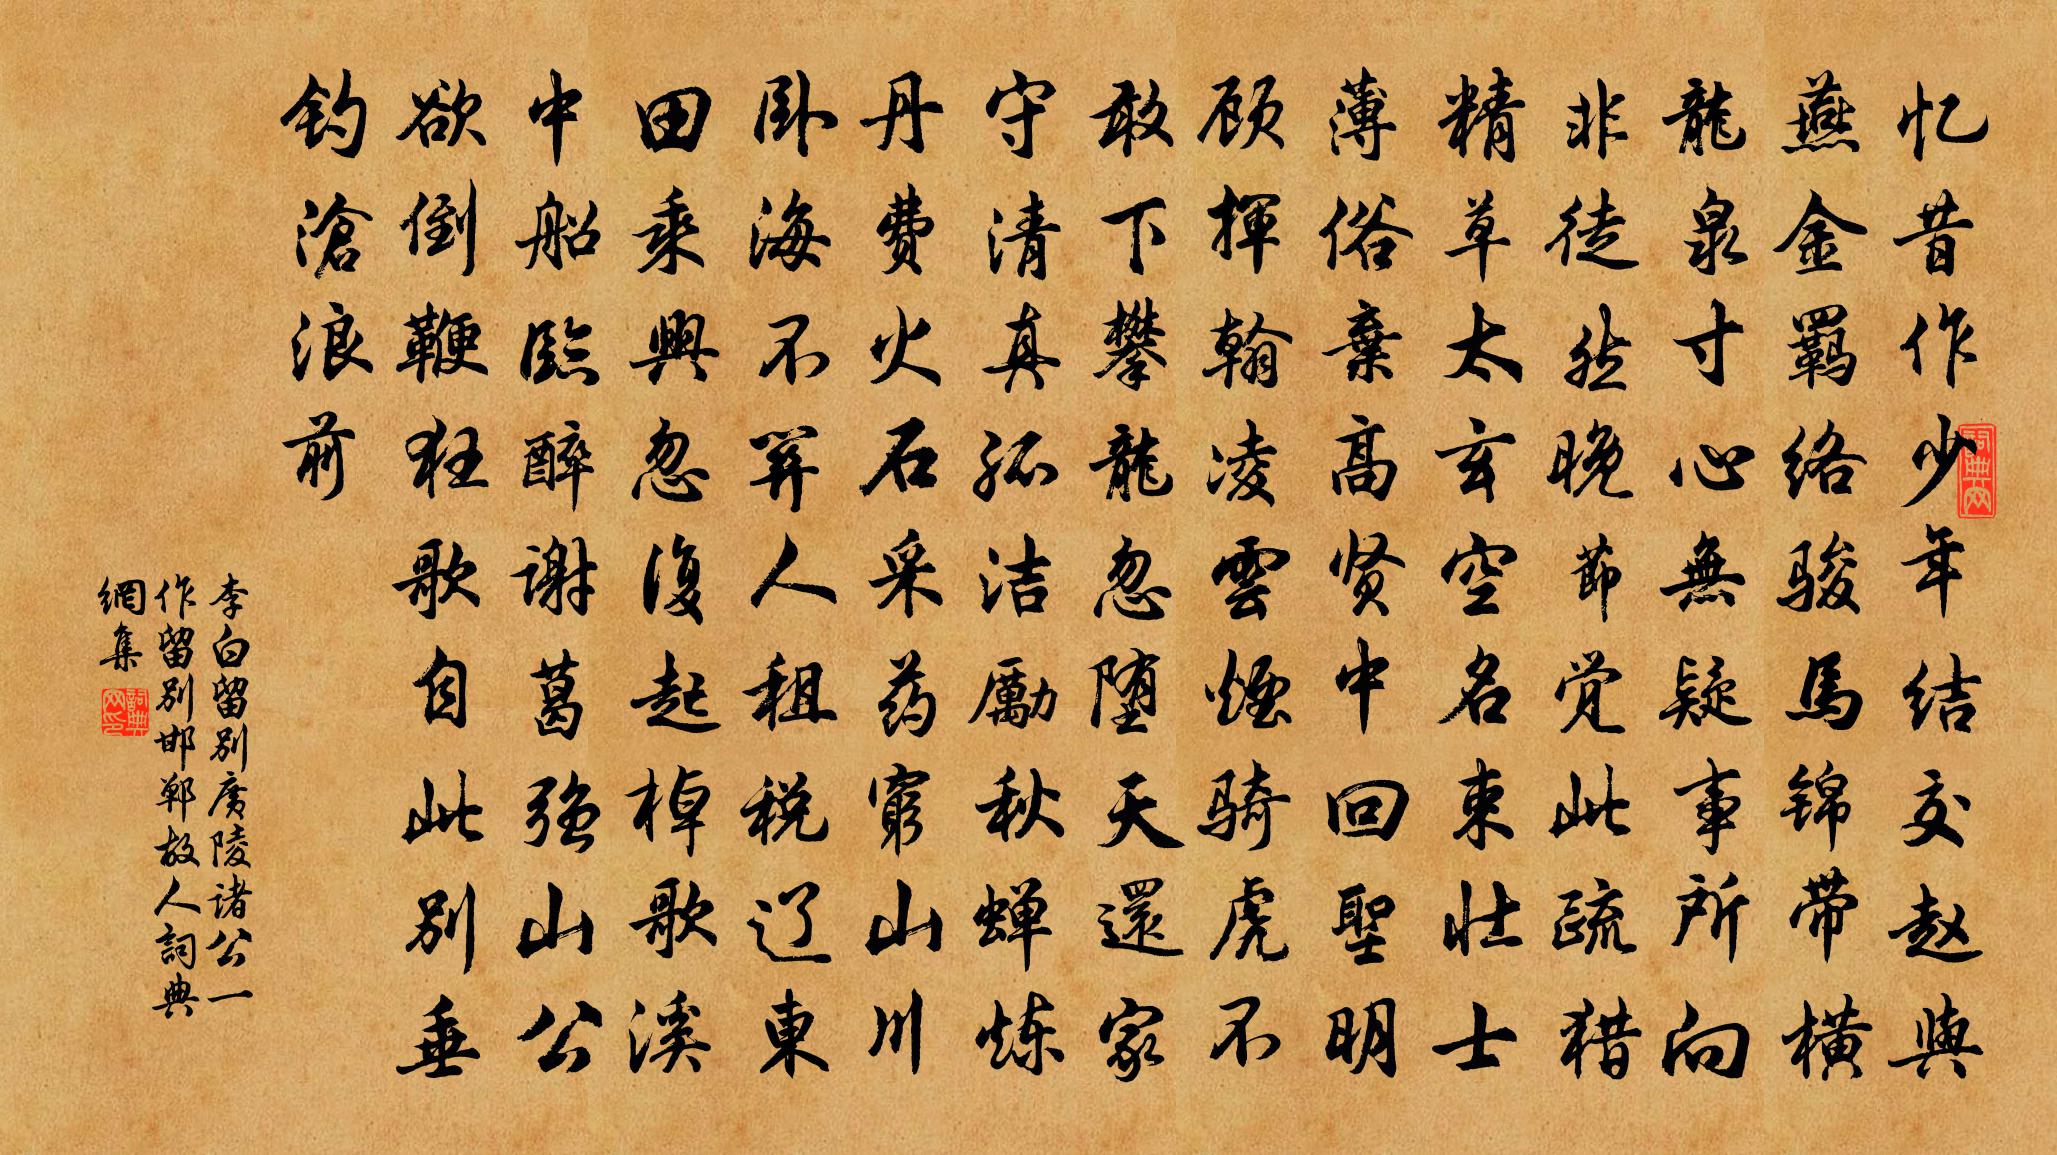 忆昔作少年结交赵與
燕金羁络骏馬锦带横
龍泉寸心無疑事所向
非徒然晚節觉此疏猎
精草太玄空名束壮士
薄俗棄高贤中回聖明
顾揮翰凌雲煙骑虎不
敢下攀龍忽堕天還家
守清真孤洁勵秋蝉炼
丹费火石采药窮山川
卧海不關人租税辽東
田乘興忽復起棹歌溪
中船臨醉謝葛强山公
欲倒鞭狂歌自此别垂
钓滄浪前
李白留别廣陵诸公一
作留别邯郸故人詞典
網集